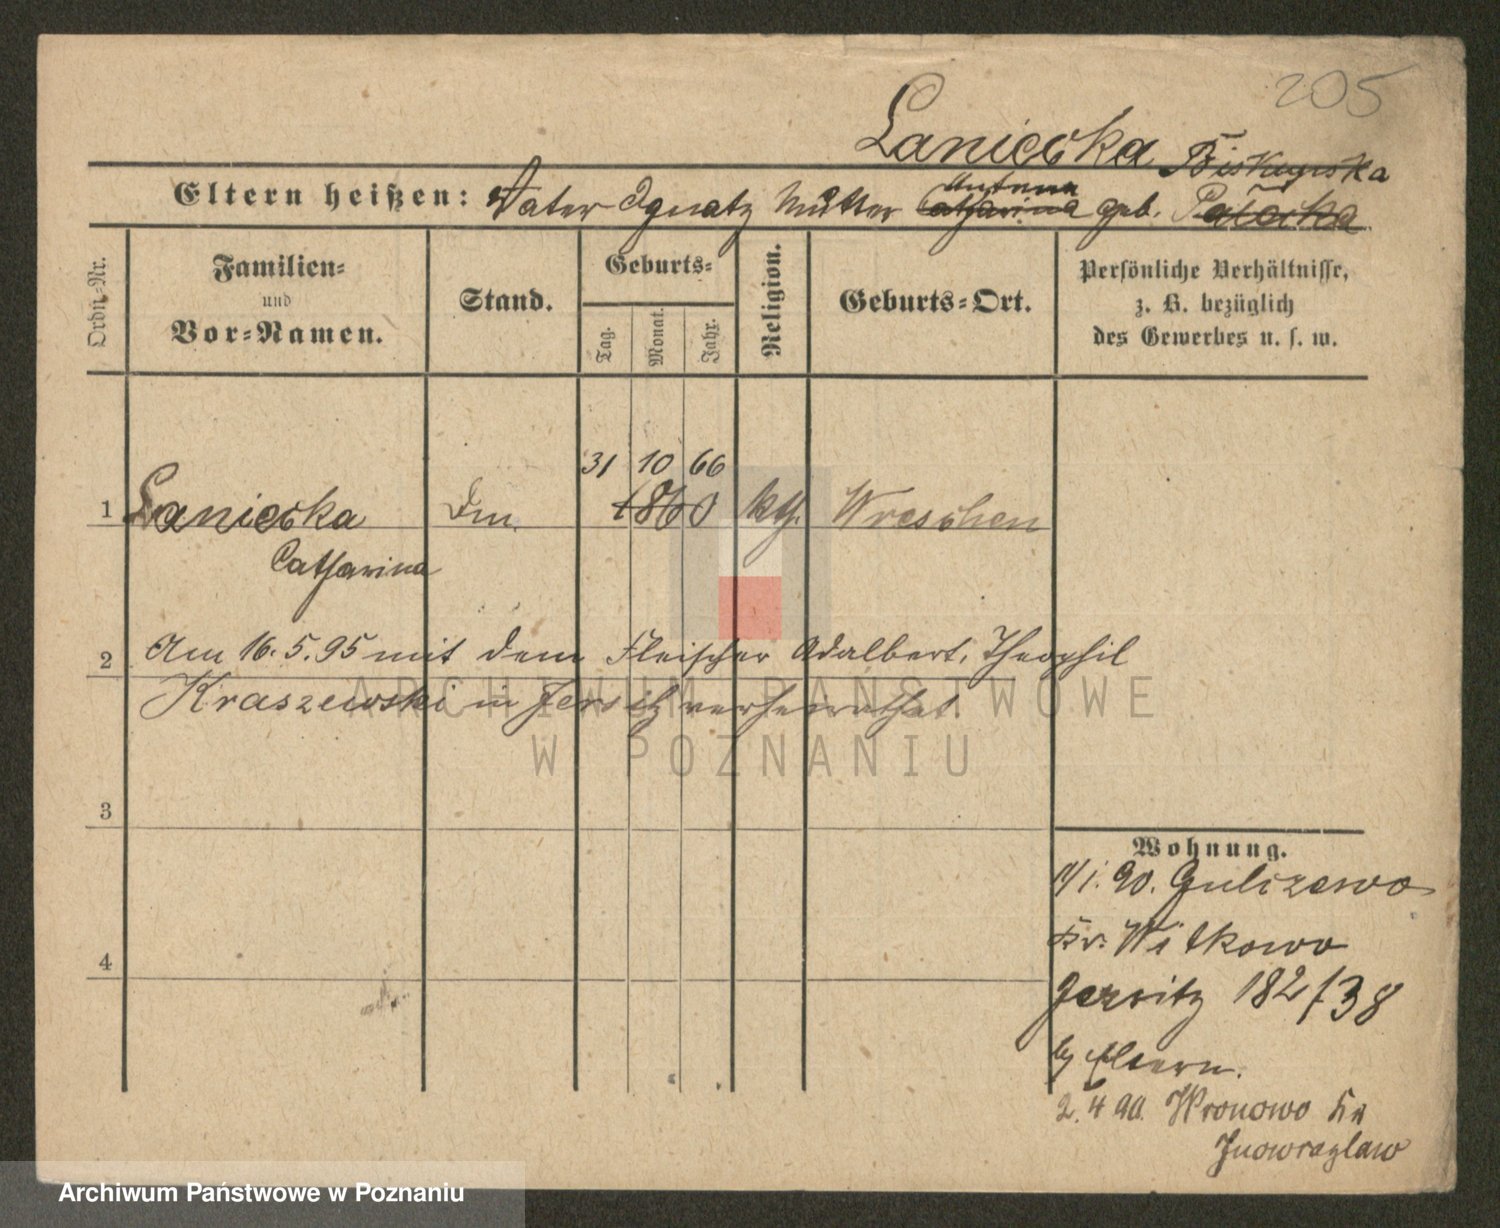 205
Laniecka Biskupska
Eltern heißen: Vater Ignatz Mutter Catharina Antonna geb.
Ordn.-Nr.
Familien-
und
Vor-Namen.
Stand.
Geburts-
Tag.
Monat.
Jahr.
Religion.
Geburts-Ort.
Persönliche Verhältnisse,
z. B. bezüglich
des Gewerbes u. s. w.
31 10 66
1 Laniecka 1860 kth. Wreschen
Catharina
2 Am 16.5.95 mit dem Fleischer Adalbert, Theophil
Kraszewski in Jersitz verheirathet.
ARCHIWUM PAŃSTWOWE
W POZNANIU
3
4
Wohnung.
90. Gulczewo
Kr. Witkowo
Jersitz 182/38
b/ Eltern.
2. 4 90. Wronowo Kr
Inowrazlaw
Archiwum Państwowe w Poznaniu